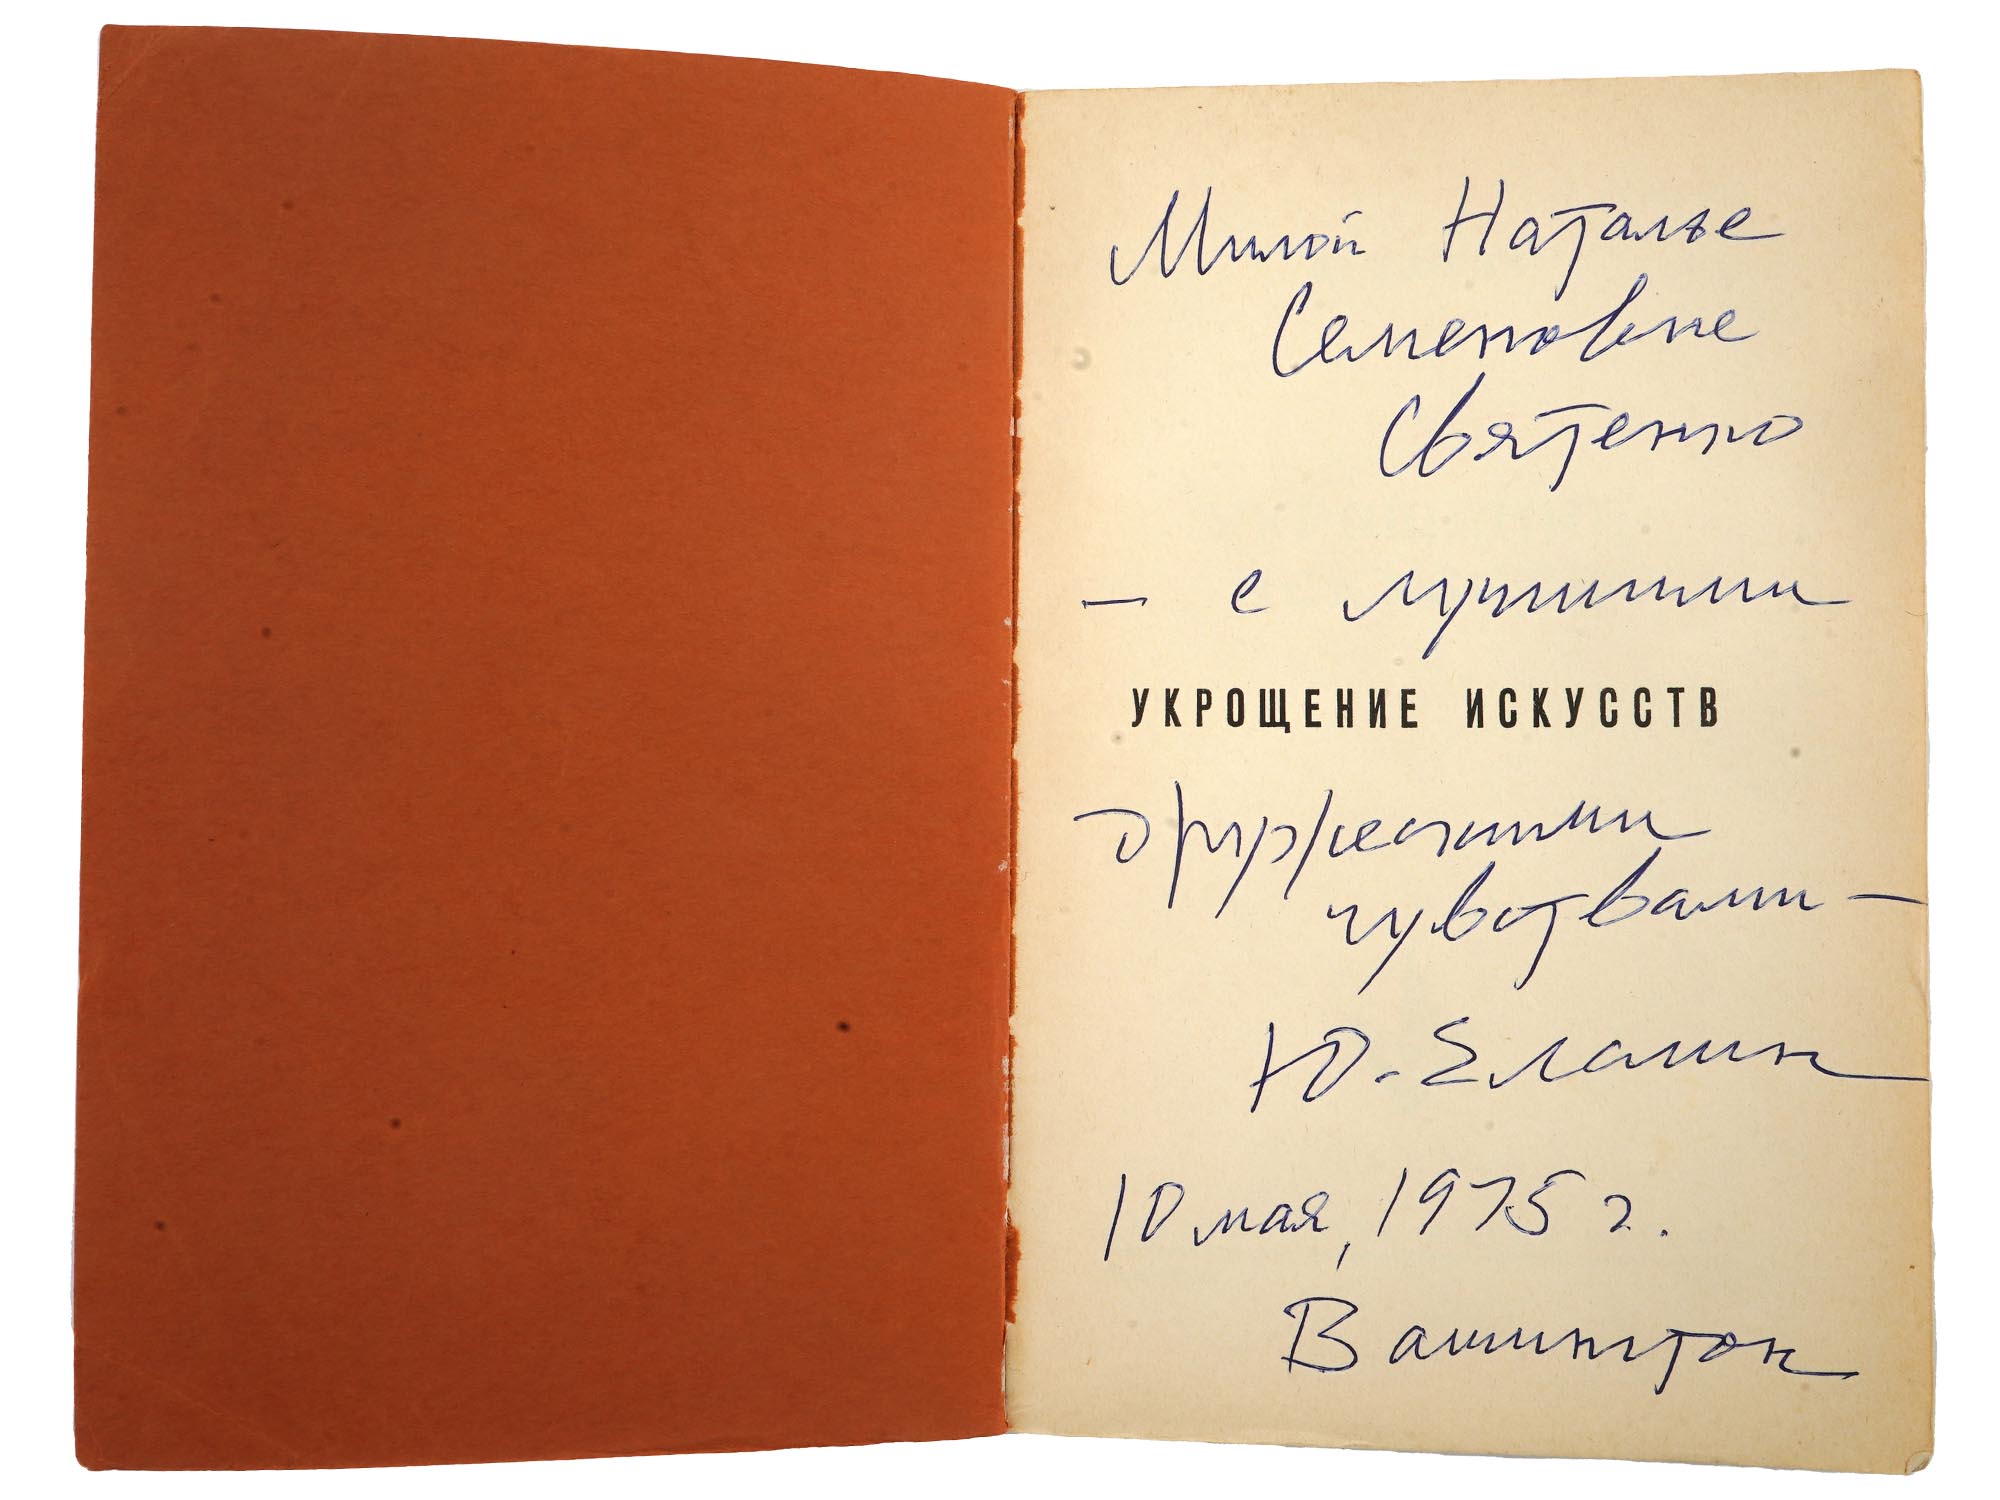 Милой Наталье
Семеновне
Святенко
— с лучшими
УКРОЩЕНИЕ ИСКУССТВ
дружескими
чувствами —
Ю. Елагин
10 мая, 1975 г.
Вашингтон